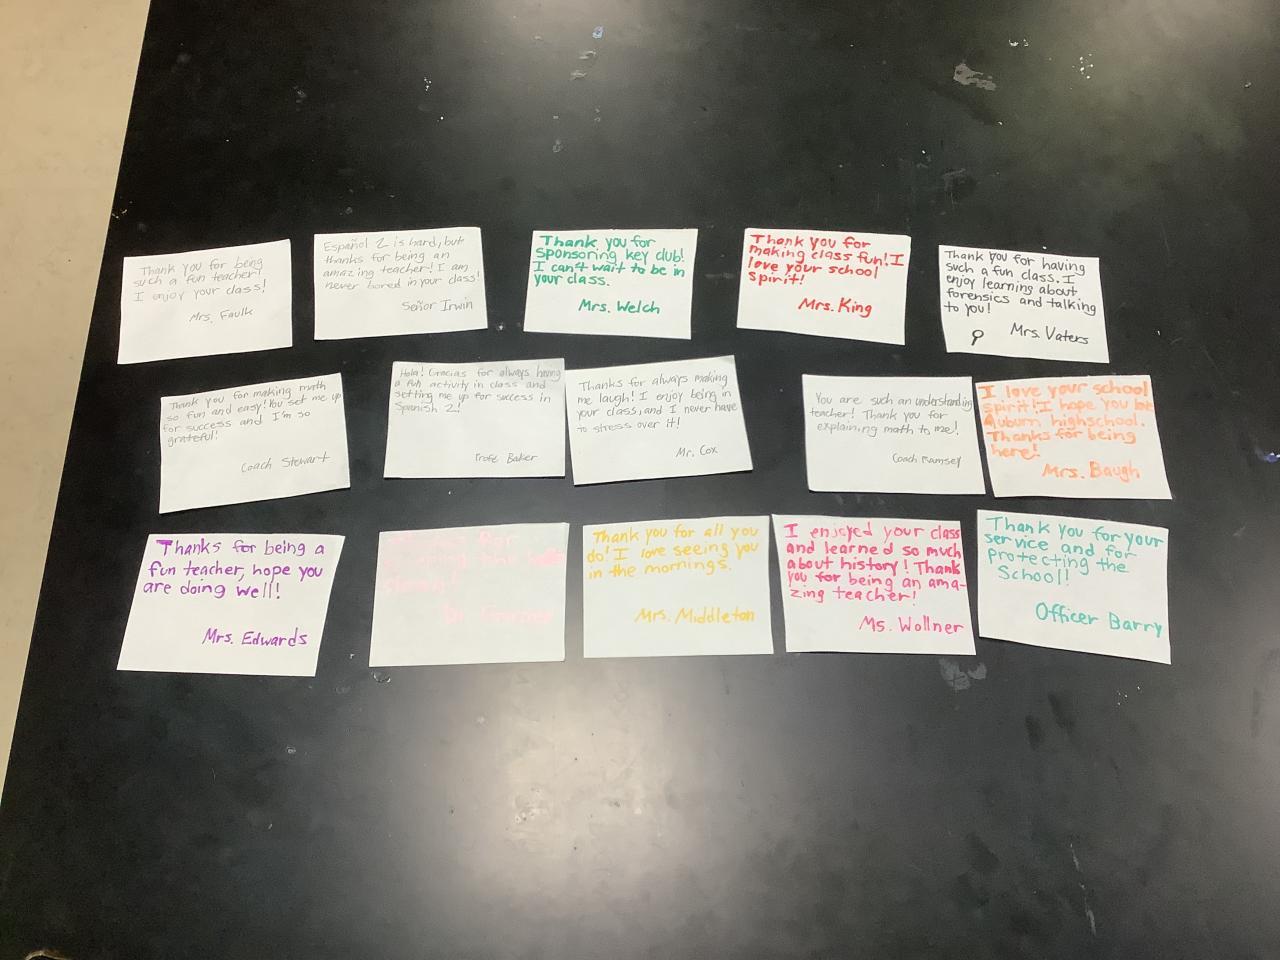 Thank you for being
such a fun teacher!
I enjoy your class!
Mrs. Faulk
Español 2 is hard, but
thanks for being an
amazing teacher! I am
never bored in your class!
Señor Irwin
Thank you for
sponsoring key club!
I can't wait to be in
your class.
Mrs. Welch
Thank you for
making class fun! I
love your school
spirit!
Mrs. King
Thank you for having
such a fun class. I
enjoy learning about
forensics and talking
to you!
Mrs. Vaters
Thank you for making math
so fun and easy! You set me up
for success and I'm so
grateful!
Coach Stewart
Hola! Gracias for always having
a fun activity in class and
setting me up for success in
Spanish 2!
Profe Baker
Thanks for always making
me laugh! I enjoy being in
your class, and I never have
to stress over it!
Mr. Cox
You are such an understanding
teacher! Thank you for
explaining math to me!
Coach Ramsey
I love your school
spirit! I hope you
Auburn highschool.
Thanks for being
here!
Mrs. Baugh
Thanks for being a
fun teacher, hope you
are doing well!
Mrs. Edwards
for
Dr.
Thank you for all you
do! I love seeing you
in the mornings.
Mrs. Middleton
I enjoyed your class
and learned so much
about history! Thank
you for being an ama-
zing teacher!
Ms. Wollner
Thank you for your
service and for
protecting the
School!
Officer Barry